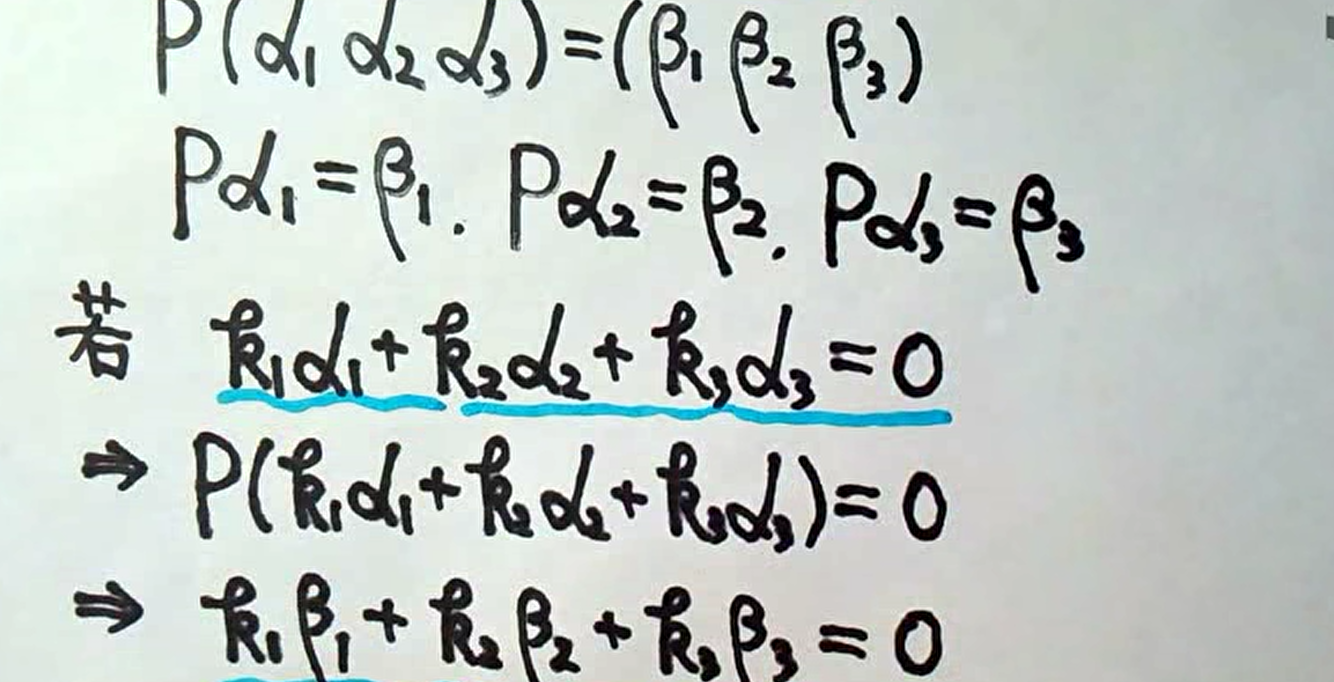 P(α₁ α₂ α₃)=(β₁ β₂ β₃)
Pα₁=β₁. Pα₂=β₂. Pα₃=β₃
若 k₁α₁+k₂α₂+k₃α₃=0
⇒ P(k₁α₁+k₂α₂+k₃α₃)=0
⇒ k₁β₁+k₂β₂+k₃β₃=0